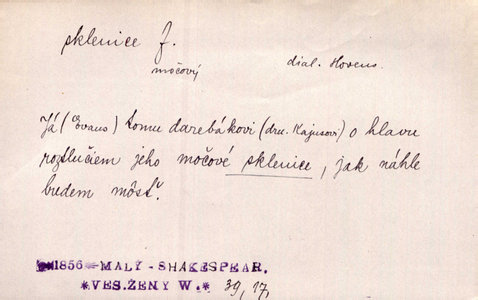 sklenice f.
močový dial. Hovens.
Já (Evans) tomu darebákovi (dru. Kajusovi) o hlavu
roztlučiem jeho močové sklenice, jak náhle
budem môsť.
1856 MALÝ-SHAKESPEAR.
*VES.ŽENY W.* 39, 17,